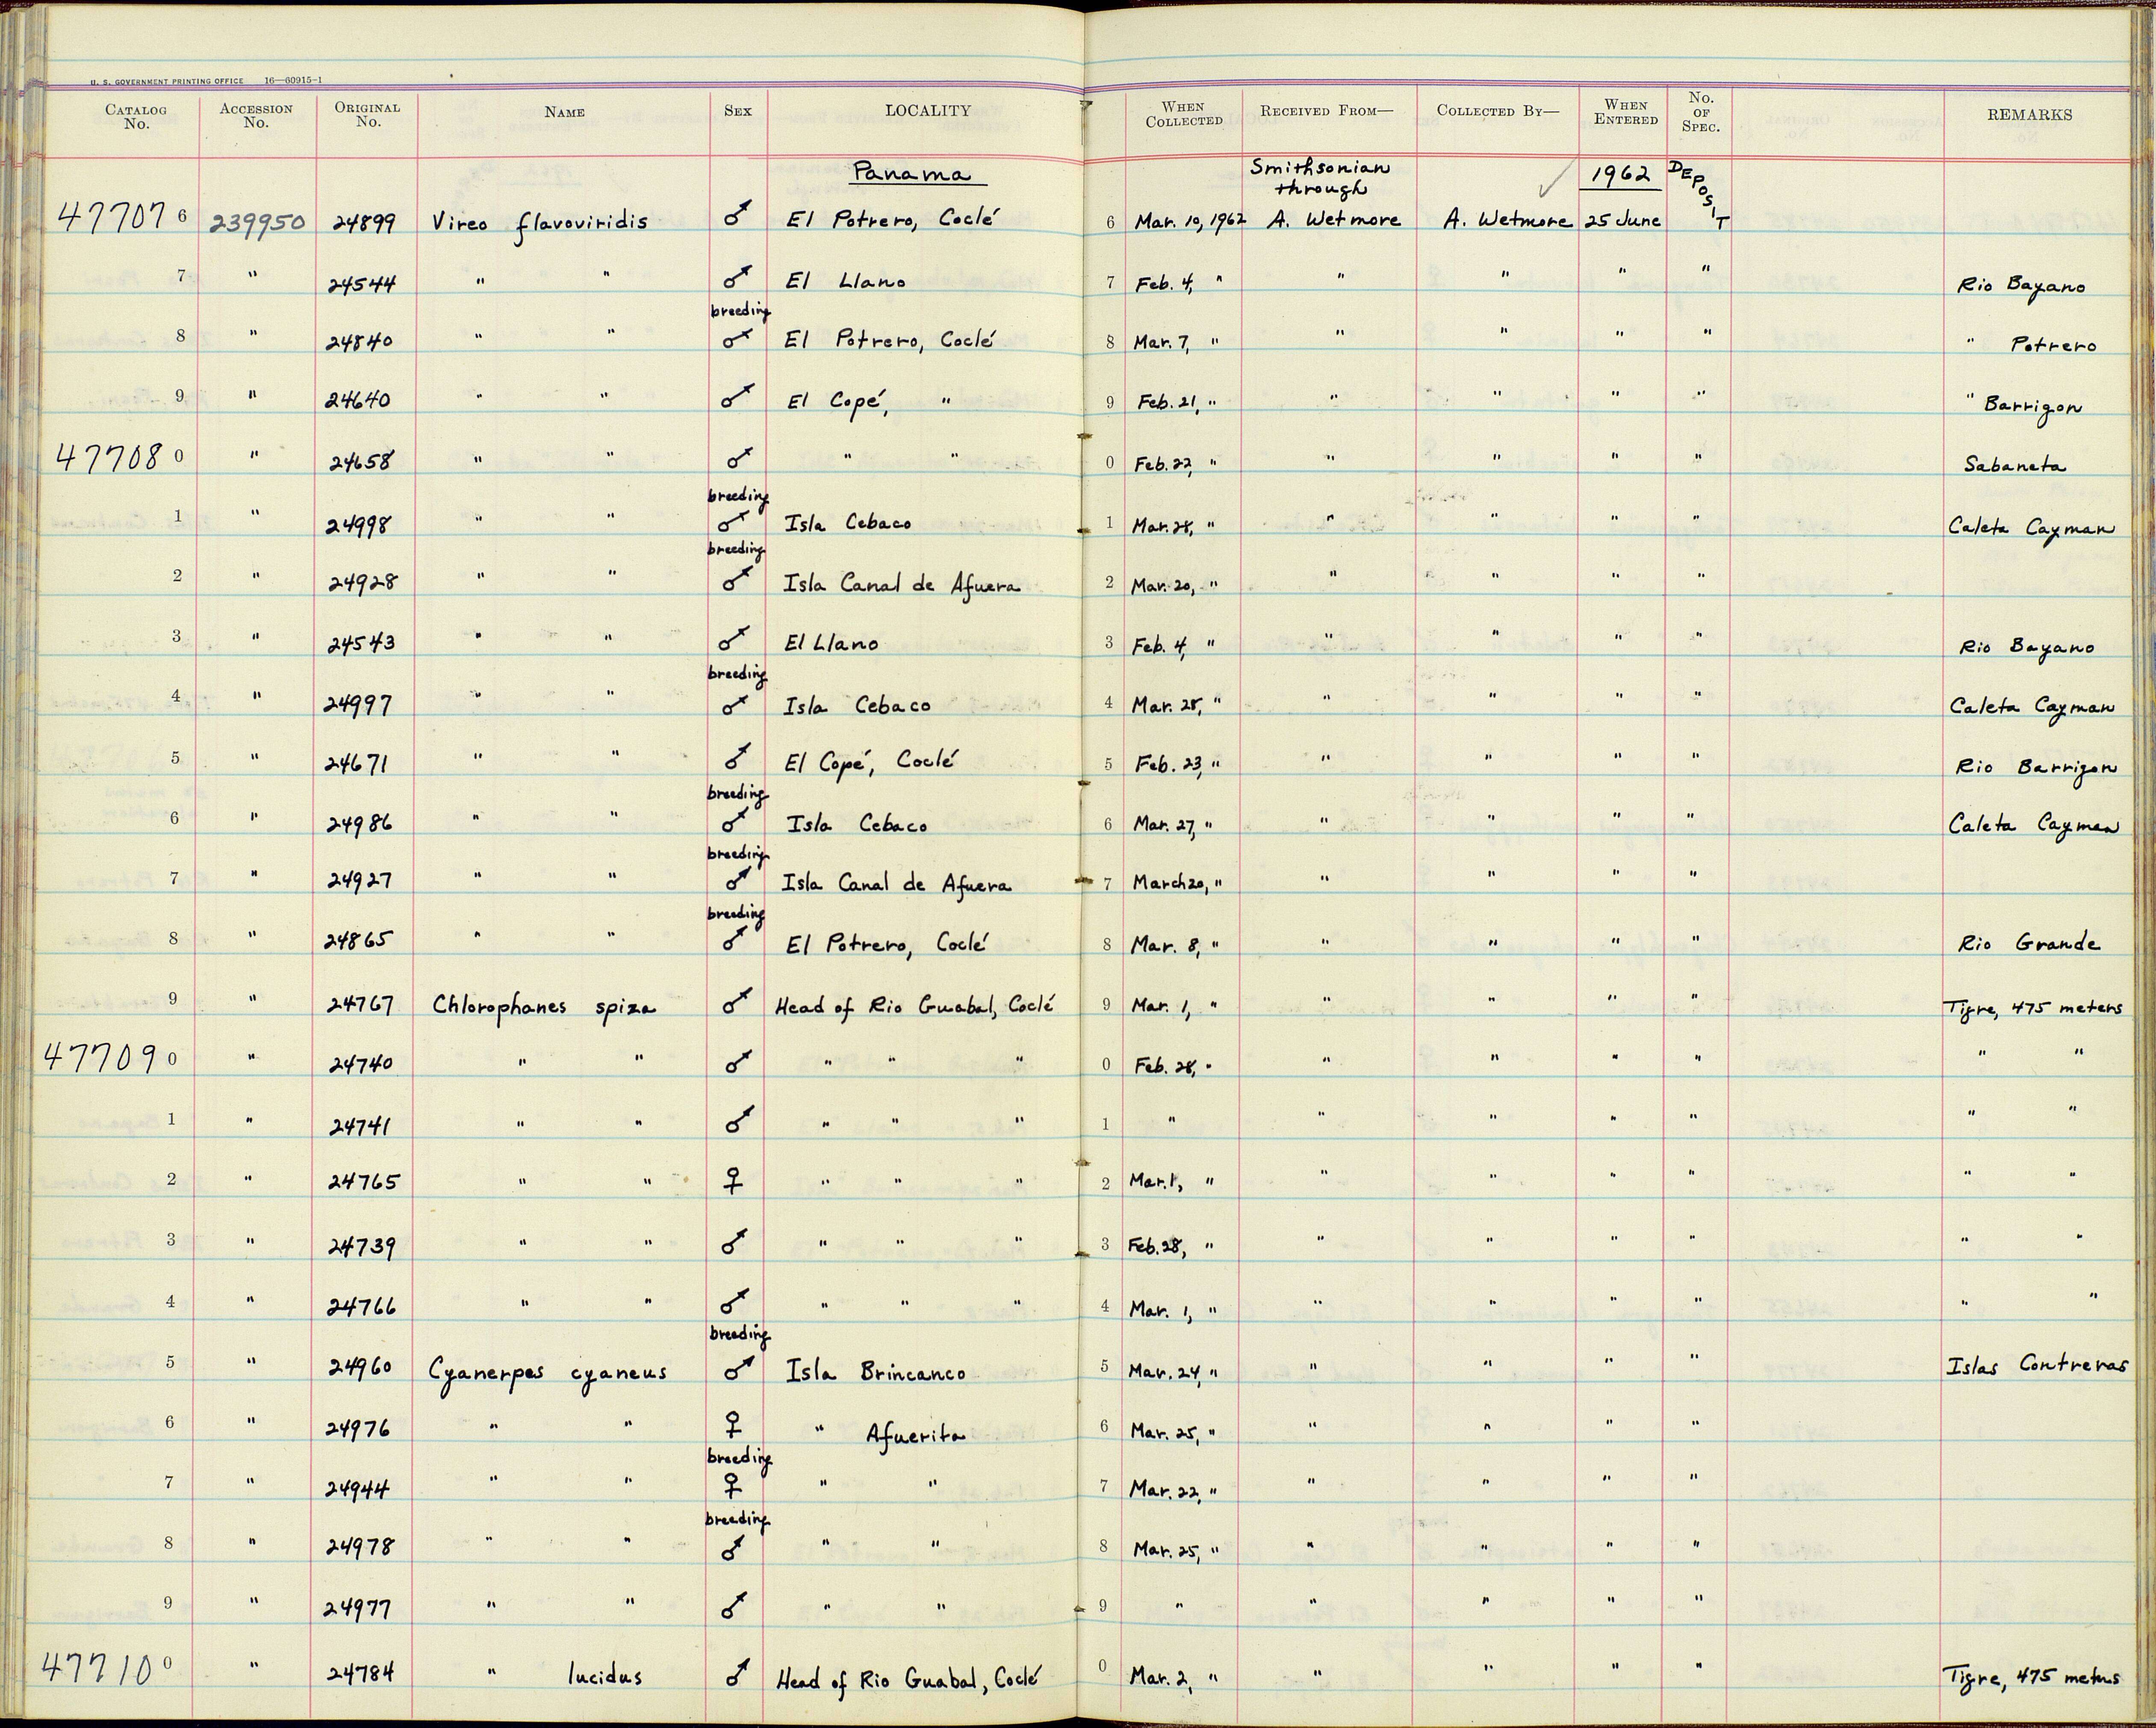 U. S. GOVERNMENT PRINTING OFFICE 16—60915-1
CATALOG No. ACCESSION No. ORIGINAL No. NAME SEX LOCALITY WHEN COLLECTED RECEIVED FROM— COLLECTED BY— WHEN ENTERED No. OF SPEC. REMARKS
Panama Smithsonian through 1962 DEPOSIT
47707 6 239950 24899 Vireo flavoviridis ♂ El Potrero, Coclé 6 Mar. 10, 1962 A. Wetmore A. Wetmore 25 June
7 " 24544 " " ♂ El Llano 7 Feb. 4, " " " " " Rio Bayano
8 " 24840 " " breeding ♂ El Potrero, Coclé 8 Mar. 7, " " " " " " Potrero
9 " 24640 " " ♂ El Copé, " 9 Feb. 21, " " " " " " Barrigon
47708 0 " 24658 " " ♂ " " 0 Feb. 22, " " " " " Sabaneta
1 " 24998 " " breeding ♂ Isla Cebaco 1 Mar. 28, " " " " " Caleta Cayman
2 " 24928 " " breeding ♂ Isla Canal de Afuera 2 Mar. 20, " " " " "
3 " 24543 " " ♂ El Llano 3 Feb. 4, " " " " " Rio Bayano
4 " 24997 " " breeding ♂ Isla Cebaco 4 Mar. 28, " " " " " Caleta Cayman
5 " 24671 " " ♂ El Copé, Coclé 5 Feb. 23, " " " " " Rio Barrigon
6 " 24986 " " breeding ♂ Isla Cebaco 6 Mar. 27, " " " " " Caleta Cayman
7 " 24927 " " breeding ♂ Isla Canal de Afuera 7 March 20, " " " " "
8 " 24865 " " breeding ♂ El Potrero, Coclé 8 Mar. 8, " " " " " Rio Grande
9 " 24767 Chlorophanes spiza ♂ Head of Rio Guabal, Coclé 9 Mar. 1, " " " " " Tigre, 475 meters
47709 0 " 24740 " " ♂ " " " 0 Feb. 28, " " " " " " "
1 " 24741 " " ♂ " " " 1 " " " " " " "
2 " 24765 " " ♀ " " " 2 Mar. 1, " " " " " " "
3 " 24739 " " ♂ " " " 3 Feb. 28, " " " " " " "
4 " 24766 " " ♂ " " " 4 Mar. 1, " " " " " " "
5 " 24960 Cyanerpes cyaneus breeding ♂ Isla Brincanco 5 Mar. 24, " " " " " Islas Contreras
6 " 24976 " " ♀ " Afuerita 6 Mar. 25, " " " " "
7 " 24944 " " breeding ♀ " " 7 Mar. 22, " " " " "
8 " 24978 " " breeding ♂ " " 8 Mar. 25, " " " " "
9 " 24977 " " ♂ " " 9 " " " " "
47710 0 " 24784 " lucidus ♂ Head of Rio Guabal, Coclé 0 Mar. 2, " " " " " Tigre, 475 meters